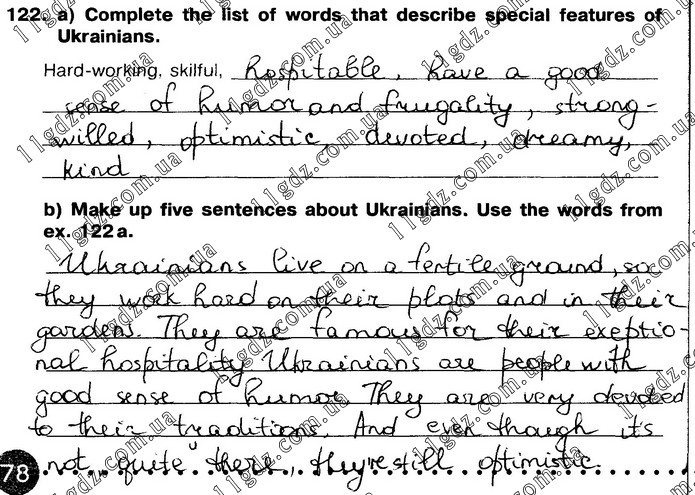 122. a) Complete the list of words that describe special features of
Ukrainians.
Hard-working, skilful, hospitable, have a good
sense of humor and frugality, strong-
willed, optimistic, devoted, dreamy,
kind
b) Make up five sentences about Ukrainians. Use the words from
ex. 122 a.
Ukrainians live on a fertile ground, so
they work hard on their plots and in their
gardens. They are famous for their exeptio-
nal hospitality. Ukrainians are people with
good sense of humor. They are very devoted
to their traditions. And even though it's
not "quite" there, they're still optimistic.
78
11gdz.com.ua